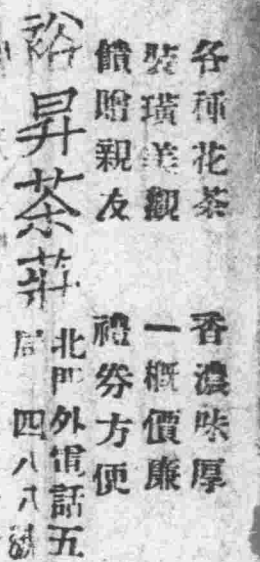 各種花茶 香濃味厚
裝璜美觀 一概價廉
餽贈親友 禮券方便
裕昇茶莊
北門外電話五
局四八八號